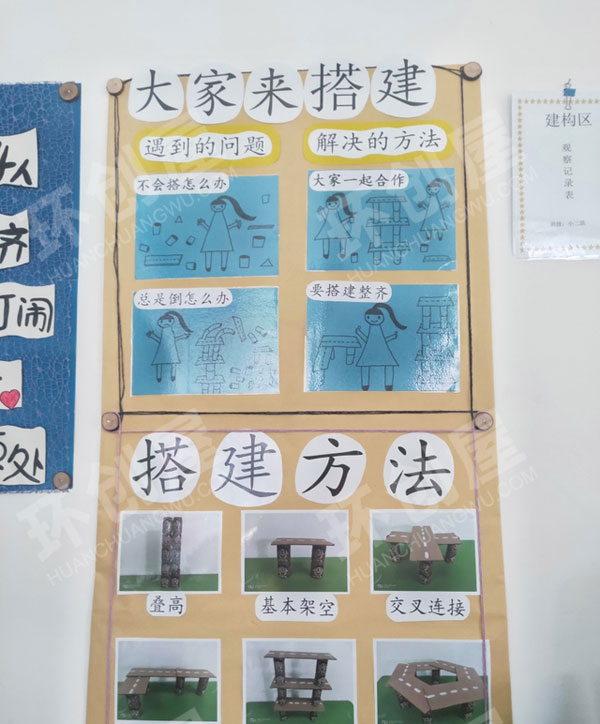 大家来搭建
遇到的问题
解决的方法
不会搭怎么办
大家一起合作
总是倒怎么办
要搭建整齐
搭建方法
叠高
基本架空
交叉连接
人
齐
闹
处
建构区
观察记录表
班级：小二班
环创屋
HUANCHUANGWU.COM